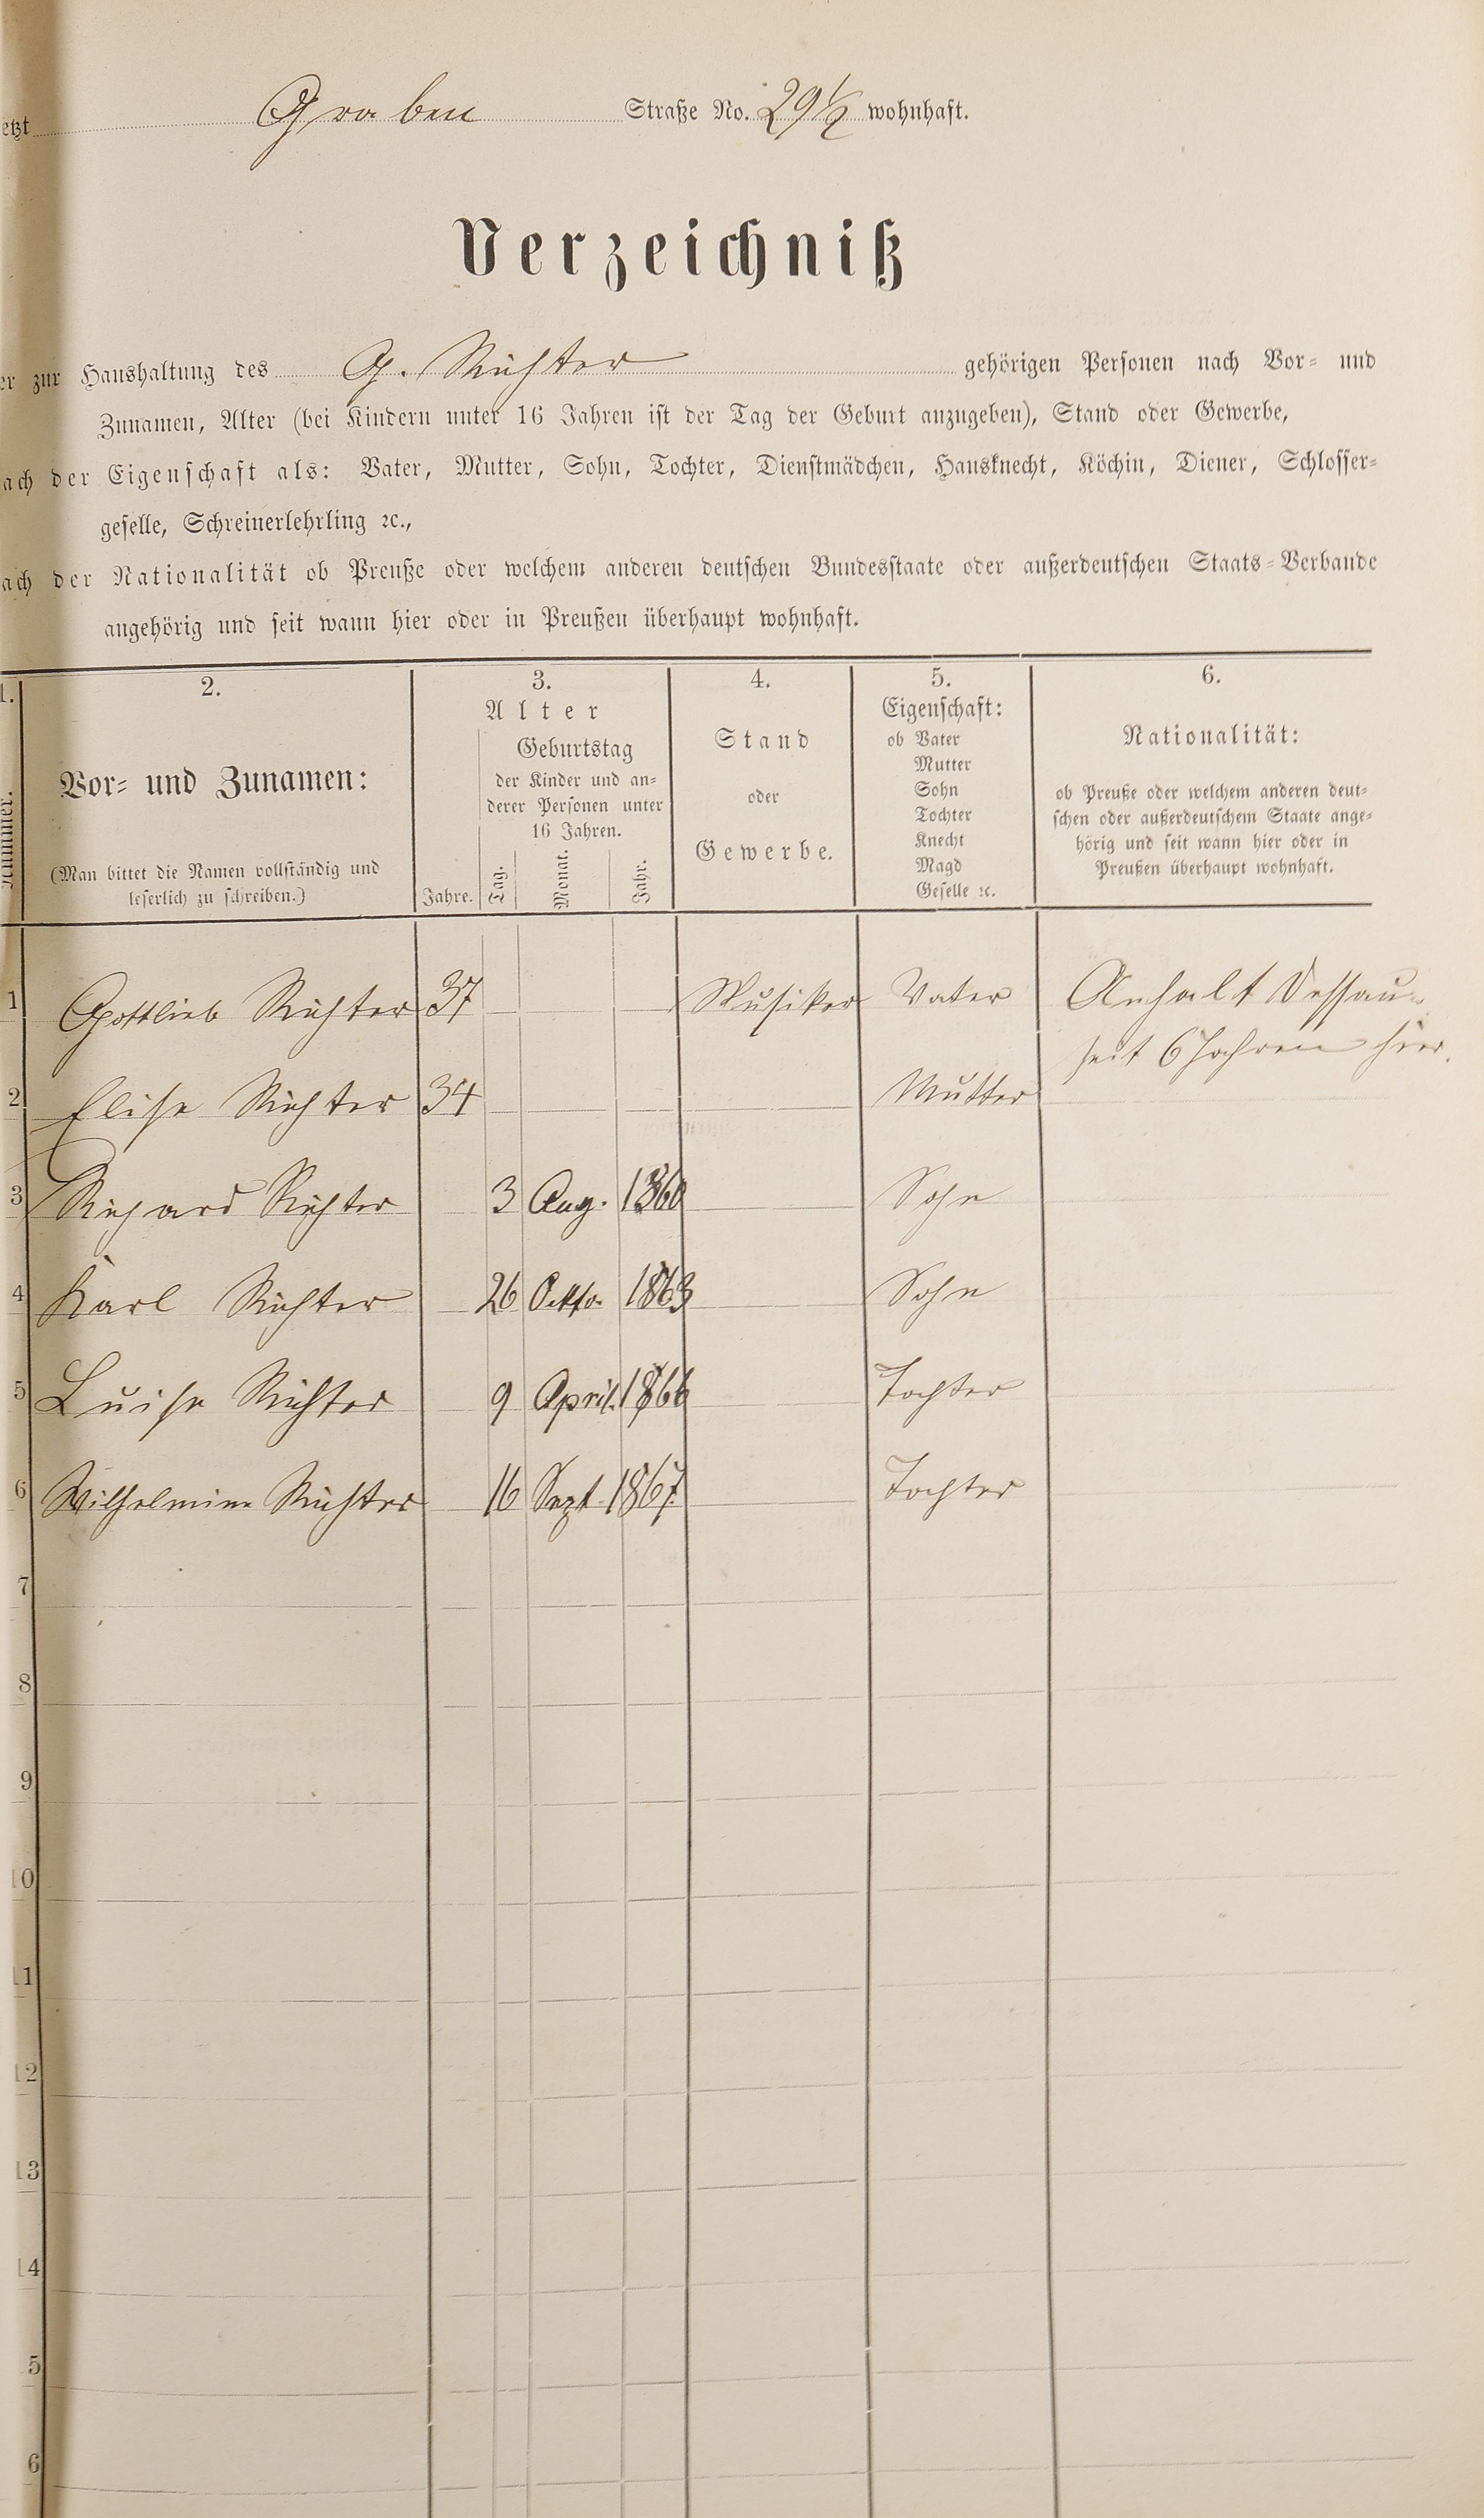 etzt Graben Straße No. 29½ wohnhaft.
Verzeichniß
er zur Haushaltung des G. Richter gehörigen Personen nach Vor- und
Zunamen, Alter (bei Kindern unter 16 Jahren ist der Tag der Geburt anzugeben), Stand oder Gewerbe,
ach der Eigenschaft als: Vater, Mutter, Sohn, Tochter, Dienstmädchen, Hausknecht, Köchin, Diener, Schlosser-
geselle, Schreinerlehrling ꝛc.,
ach der Nationalität ob Preuße oder welchem anderen deutschen Bundesstaate oder außerdeutschen Staats-Verbande
angehörig und seit wann hier oder in Preußen überhaupt wohnhaft.
1. 2. 3. 4. 5. 6.
Nummer.
Vor- und Zunamen:
(Man bittet die Namen vollständig und
leserlich zu schreiben.)
Alter
Geburtstag
der Kinder und an-
derer Personen unter
16 Jahren.
Jahre. Tag. Monat. Jahr.
Stand
oder
Gewerbe.
Eigenschaft:
ob Vater
Mutter
Sohn
Tochter
Knecht
Magd
Geselle ꝛc.
Nationalität:
ob Preuße oder welchem anderen deut-
schen oder außerdeutschem Staate ange-
hörig und seit wann hier oder in
Preußen überhaupt wohnhaft.
1 Gottlieb Richter 37 Musiker Vater Anhalt Dessau
seit 6 Jahren hier.
2 Elise Richter 34 Mutter
3 Richard Richter 3 Aug. 1860 Sohn
4 Karl Richter 26 Oktb. 1863 Sohn
5 Luise Richter 9 April. 1866 Tochter
6 Wilhelmine Richter 16 Sept 1867. Tochter
7
8
9
10
11
12
13
14
5
6